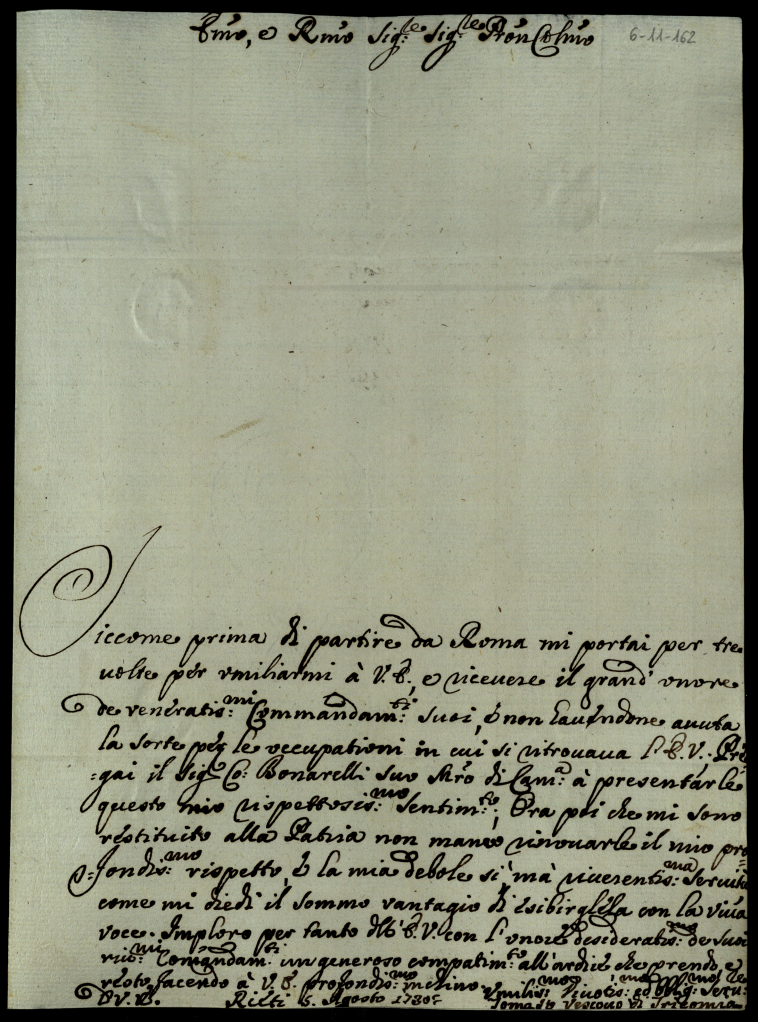 Emo, e Rmo Sig:re Sig:re Pron Colmo
6-11-162
Siccome prima di partire da Roma mi portai per tre
volte per umiliarmi à V. E., e ricevere il grand' onore
de veneratis:mi Commandam:ti suoi, è non havendone avuta
la sorte per le occupationi in cui si ritrovava l' E. V.; Pre
=gai il Sig:r Co: Bonarelli suo Mro di Cam:a à presentarle
questo mio rispettosis:mo sentim:to; Ora poi che mi sono
restituito alla Patria non manco rinovarle il mio pro
=fondis:mo rispetto, è la mia debole sì mà riverentis:ma servitù
come mi diedi il sommo vantagio di esibirgliela con la viva
voce. Imploro per tanto dell' E. V. con l' onore desideratis:mo de suoi
ri:mi Comandam:ti un generoso compatim:to all' ardire che prendo, e
resto facendo à V. E. profondis:mo inchino.
D V. E. Rieti 5. Agosto 1730: Umilis:mo Divotis:mo ed Obblig:mo Serv:re
Tomaso Vescovo di